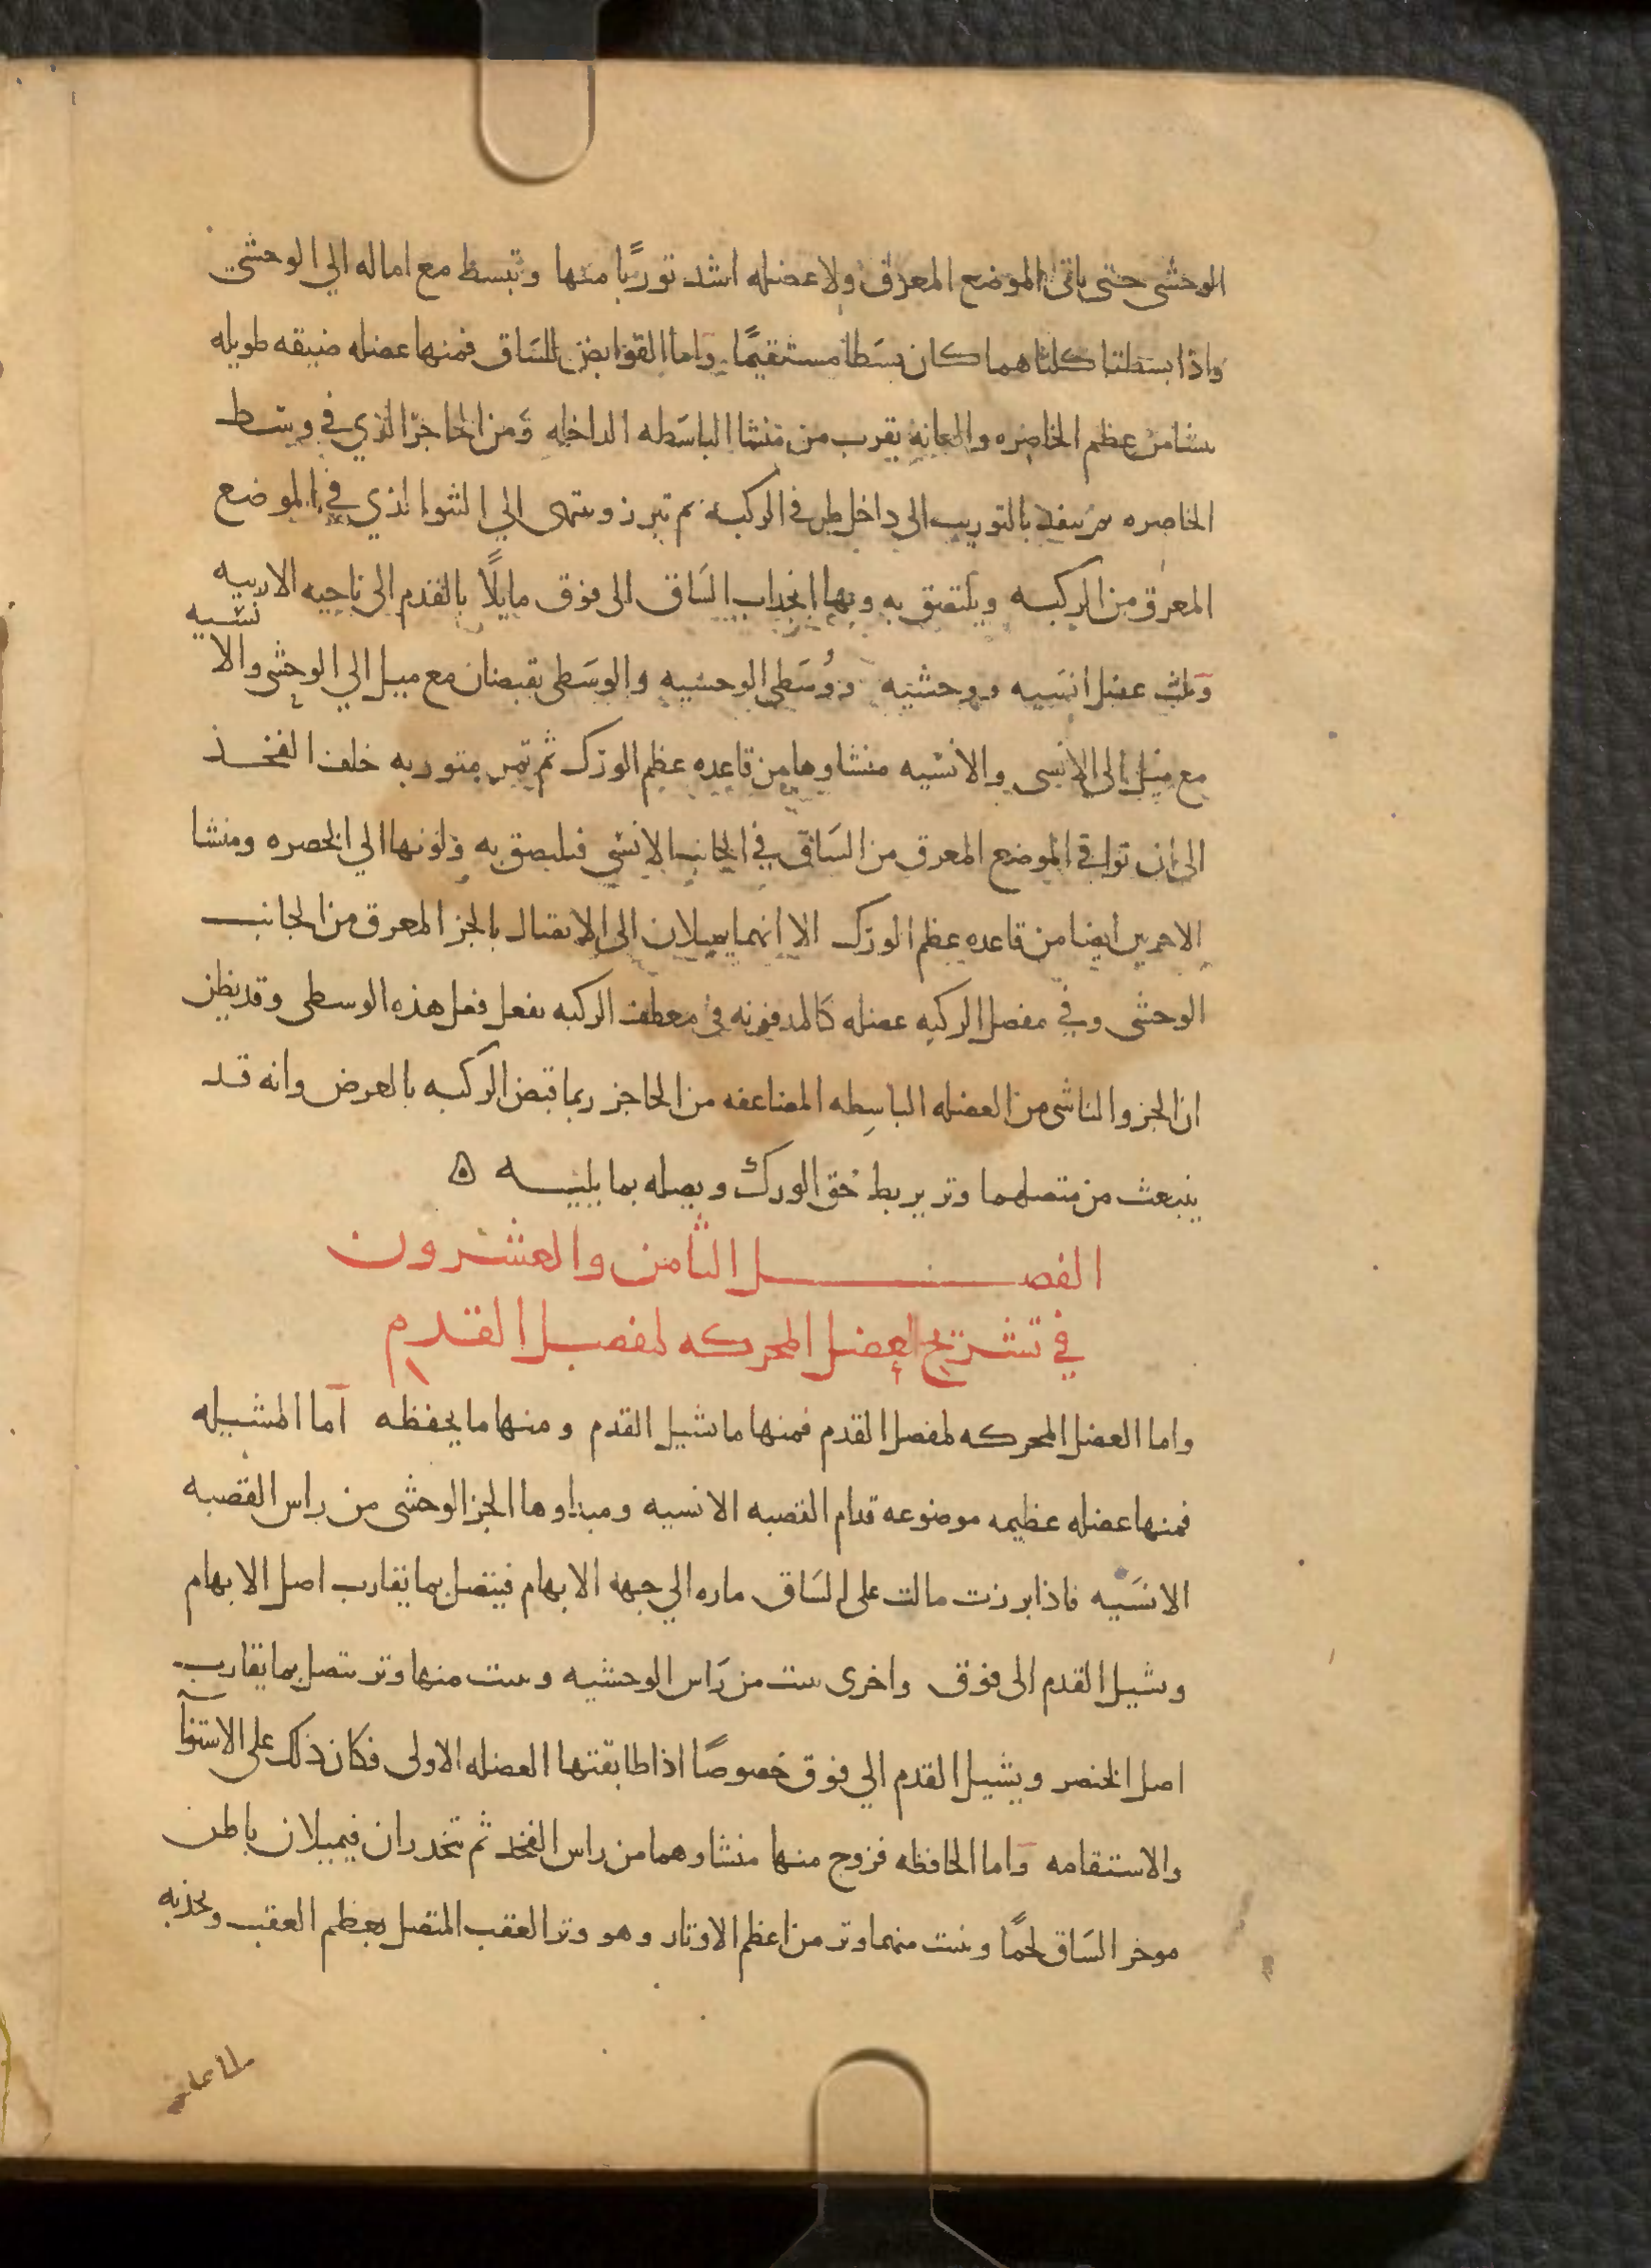 الوحشى حتى ياتى الموضع المعرق ولا عضله اشد توربًا منها وتبسط مع اماله الي الوحشي
واذا بسطتا كلتاهما كان بسَطا مستقيمًا وَاما القوابض للسَاق فمنها عضله ضيقه طويله
ىنشا من عظم الخاصره والعانه يقرب من منشا الباسَطه الداخله وَمن الحاجز الذي في وسط
الخاصره ثم ينفد بالتوريب الى داخل طرفى الركبه ثم تبرز وىنتهى الي النتوا لذي في الموضع
المعرق من الركبه ويلتصق به وبها انجداب السَاق الى فوق مايلًا بالقدم الى ناحيه الاربيه
وَثلث عضل انسَيه ووحشيه ووُسَطى الوحشيه والوسَطى يقبضان مع ميل الي الوحشى والا
نسيه
مع ميل الى الانسى والانسيه منشاوها من قاعده عظم الورك ثم تمر متوربه خلف الفخذ
الى ان توافى الموضع المعرق من السَاق في الجانب الانسي فىلىصق به ولونها الي الخضره ومنشا
الاخريين ايضا من قاعده عظم الورك الا انهما يميلان الى الاتصال بالجز المعرق من الجانب
الوحشى وفي مفصل الركبه عضله كالمدفونه في معطف الركبه تفعل فعل هذه الوسطى وقد يظن
ان الجزو الناشى من العضله الباسِطه المضاعفه من الحاجز ربما قبض الركبه بالعرض وانه قد
ينبعث من متصلهما وتر يربط حُق الورك ويصله بما يليه ۞
الفصل الثامن والعشرون
في تشريح العضل المحركه لمفصل القدم
واما العضل المحركه لمفصل القدم فمنها ما تشيل القدم ومنها ما يخفظه اما المشيله
فمنها عضله عظيمه موضوعه قدام القصبه الانسيه ومبداوها الجز الوحشى من راس القصبه
الانسَيه فاذا برزت مالت على السَاق ماره الي جهة الابهام فيتصل بما تقارب اصل الابهام
وىشيل القدم الى فوق واخرى تنبت من رَاس الوحشيه وىنبت منها وتر ىتصل بما يقارب
اصل الخنصر ويشيل القدم الي فوق خصوصًا اذا طابقتها العضله الاولى فكان ذلك على الاستوآ
والاستقامه وَاما الخافظه فزوج منها منشاوهما من راس الفخد ثم تنحدران فيميلان باطن
موخر السَاق لحمًا وىنبت منهما وتر من اعظم الاوتار وهو وتر العقب المتصل بعظم العقب ويجذبه